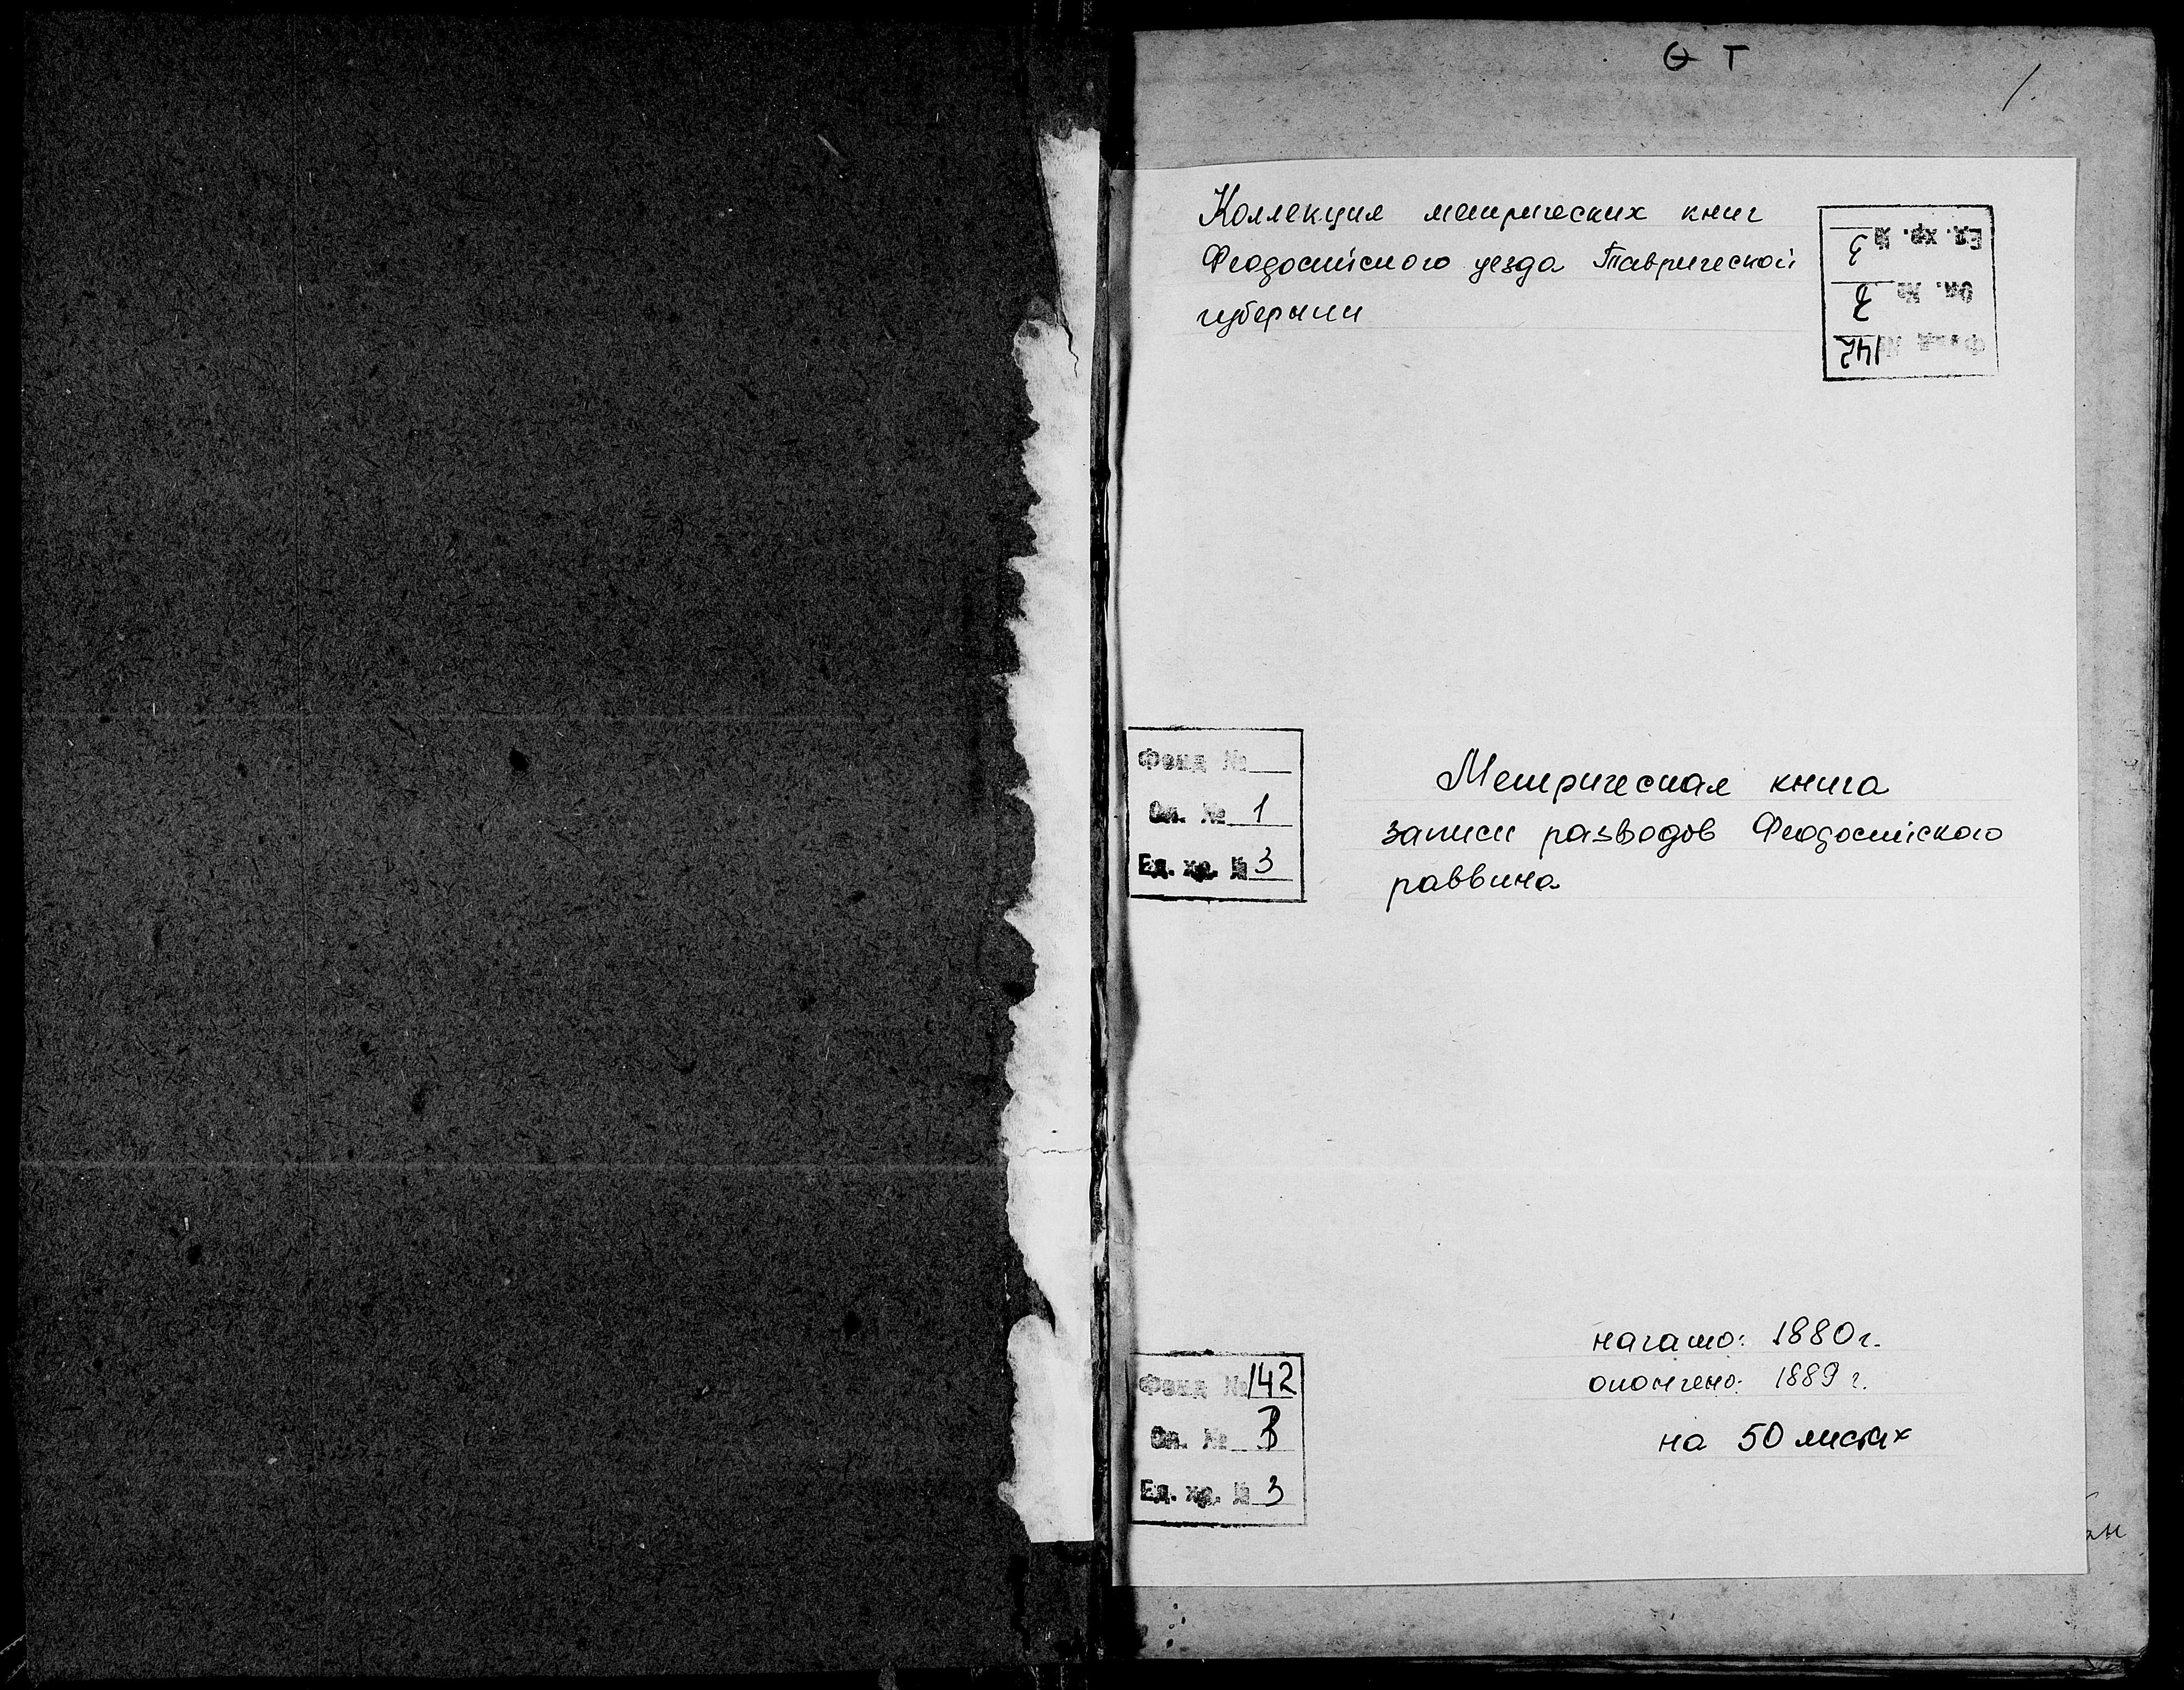 Ө Т
1.
Коллекция метрических книг
Феодосийского уезда Таврической
губернии
Ед. хр. № 3
Оп. № 3
Фонд № 142
Фонд №
Оп. № 1
Ед. хр. № 3
Метрическая книга
записи разводов Феодосийского
раввина
начато: 1880г.
окончено: 1889 г.
на 50 листах
Фонд № 142
Оп. № 3
Ед. хр. № 3